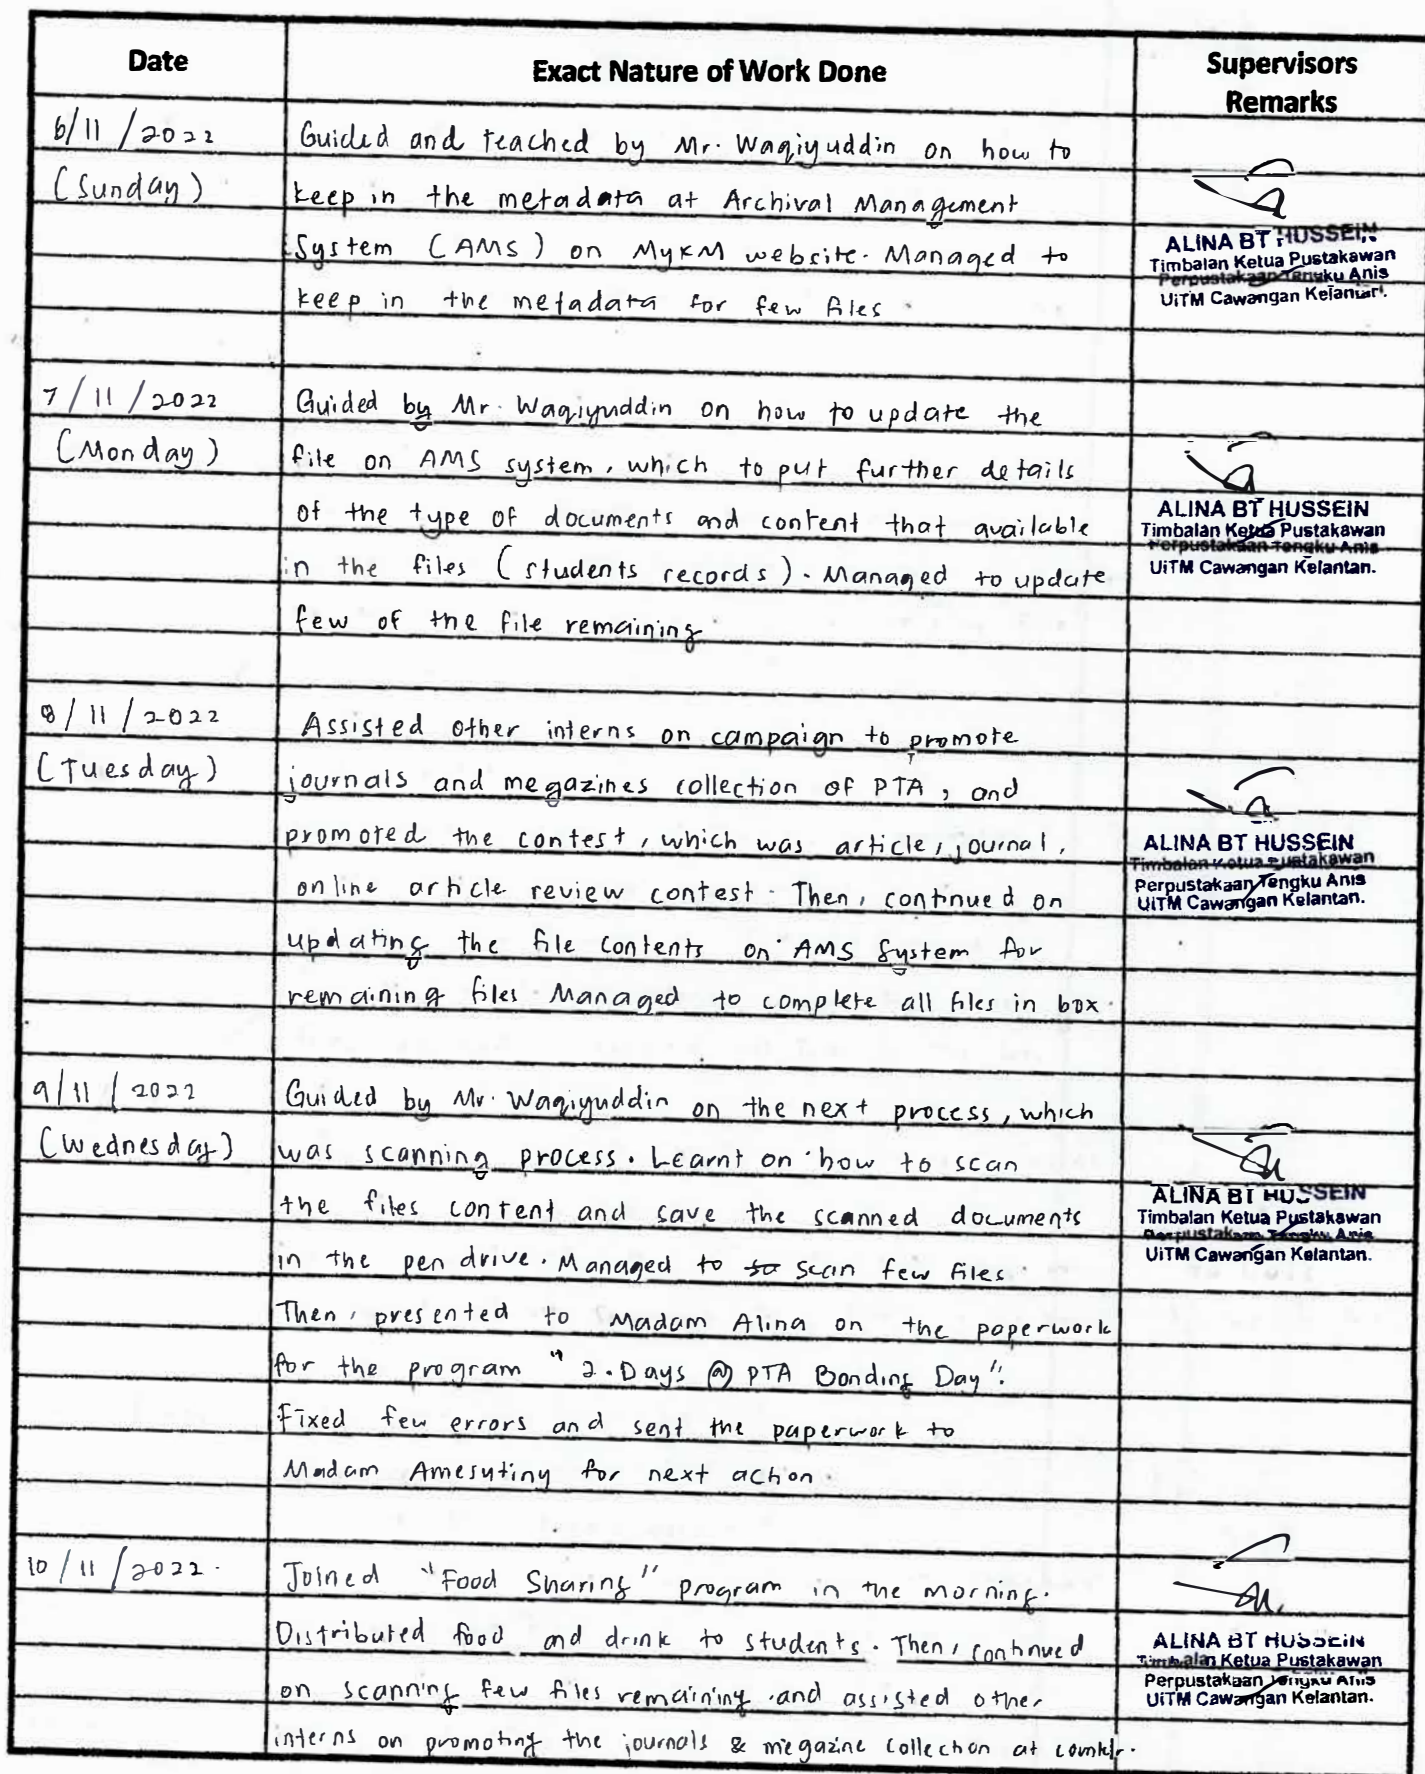 Date Exact Nature of Work Done Supervisors
Remarks
6/11/2022 Guided and teached by Mr. Waqiyuddin on how to
(Sunday) keep in the metadata at Archival Management
System (AMS) on MyKM website. Managed to
keep in the metadata for few files.
ALINA BT HUSSEIN
Timbalan Ketua Pustakawan
Perpustakaan Tengku Anis
UiTM Cawangan Kelantan.
7/11/2022 Guided by Mr. Waqiyuddin on how to update the
(Monday) file on AMS system, which to put further details
of the type of documents and content that available
in the files (students records). Managed to update
few of the file remaining.
ALINA BT HUSSEIN
Timbalan Ketua Pustakawan
Perpustakaan Tengku Anis
UiTM Cawangan Kelantan.
8/11/2022 Assisted other interns on campaign to promote
(Tuesday) journals and megazines collection of PTA, and
promoted the contest, which was article, journal,
online article review contest. Then, continued on
updating the file contents on AMS System for
remaining files. Managed to complete all files in box.
ALINA BT HUSSEIN
Timbalan Ketua Pustakawan
Perpustakaan Tengku Anis
UiTM Cawangan Kelantan.
9/11/2022 Guided by Mr. Waqiyuddin on the next process, which
(Wednesday) was scanning process. Learnt on how to scan
the files content and save the scanned documents
in the pen drive. Managed to scan few files.
Then, presented to Madam Alina on the paperwork
for the program "2.Days @ PTA Bonding Day".
Fixed few errors and sent the paperwork to
Madam Amesytiny for next action.
ALINA BT HUSSEIN
Timbalan Ketua Pustakawan
Perpustakaan Tengku Anis
UiTM Cawangan Kelantan.
10/11/2022. Joined "Food Sharing" program in the morning.
Distributed food and drink to students. Then, continued
on scanning few files remaining and assisted other
interns on promoting the journals & megazine collection at
ALINA BT HUSSEIN
Timbalan Ketua Pustakawan
Perpustakaan Tengku Anis
UiTM Cawangan Kelantan.